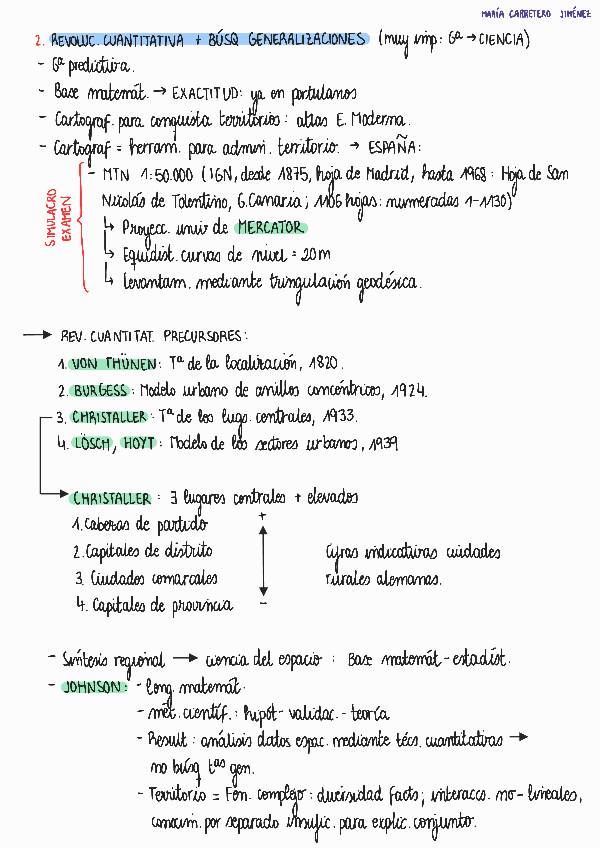 MARÍA CARRETERO JIMÉNEZ
2. REVOLUC. CUANTITATIVA + BÚSQ GENERALIZACIONES (muy imp: Gª → CIENCIA)
- Gª predictiva.
- Base matemát. → EXACTITUD: ya en portulanos
- Cartograf. para conquista territorios: atlas E. Moderna.
- Cartograf = herram. para admin. territorio. → ESPAÑA:
SIMULACRO EXAMEN
- MTN 1:50.000 (IGN, desde 1875, hoja de Madrid, hasta 1968: Hoja de San
Nicolás de Tolentino, G. Canaria; 1106 hojas: numeradas 1-1130)
↳ Proyecc. univ de MERCATOR
↳ Equidist. curvas de nivel = 20m
↳ Levantam. mediante tringulación geodésica.
→ REV. CUANTITAT. PRECURSORES:
1. VON THÜNEN: Tª de la localización, 1820.
2. BURGESS: Modelo urbano de anillos concéntricos, 1924.
3. CHRISTALLER: Tª de los lugs. centrales, 1933.
4. LÖSCH, HOYT: Modelo de los sectores urbanos, 1939
CHRISTALLER: 7 lugares centrales + elevados
1. Caberas de partido +
2. Capitales de distrito
3. Ciudades comarcales
4. Capitales de provincia -
Cifras indicativas ciudades
rurales alemanas.
- Síntesis regional → ciencia del espacio: Base matemát-estadíst.
- JOHNSON: - Leng. matemát.
- mét. científ.: hipót- validac. - teoría
- Result: análisis datos espac. mediante técs. cuantitativas →
no búsq tªs gen.
- Territorio = Fen. complejo: diversidad facts; interaccs. no-lineales,
conocim. por separado insufic. para explic. conjunto.